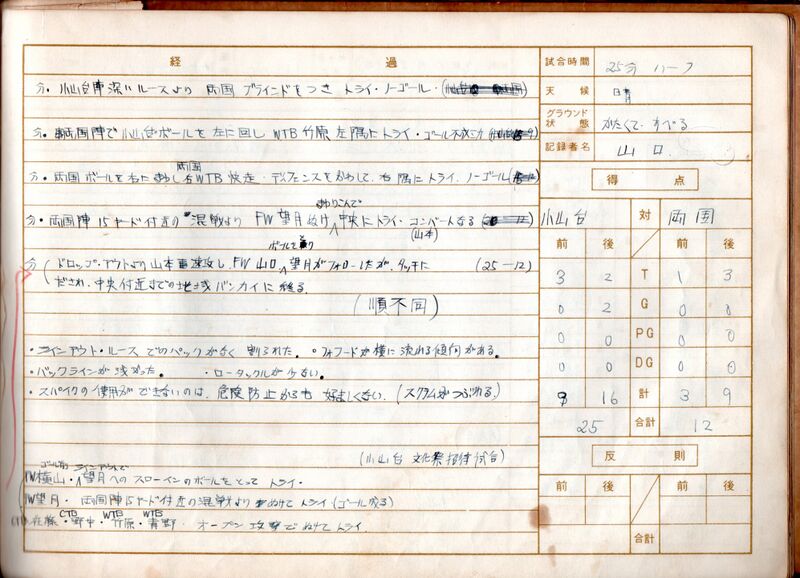 経過
分. 小山台陣深いルースより 両国 ブラインドをつき トライ・ノーゴール・
分. 両国陣で小山台ボールを左に回し WTB 竹原 左隅にトライ・ゴール不成功
両国
分. 両国ボールを右にまわし右WTB 快走・ディフェンスをかわして、右隅にトライ. ノーゴール
まわりこんで
分. 両国陣 15ヤード付近の 混戦より FW 望月ぬけ 中央にトライ・コンバートなる
(山本)
ボールを
分 (ドロップ・アウトより山本 速攻し、FW 山口、望月がフォローしたが、タッチに (25-12)
だされ、中央付近までの地域バンカイに終る.
(順不同)
・ラインアウト・ルースでのパックがなく 割られた. 。フォワードが横に流れる傾向がある。
・バックラインが浅かった. ・ロータックルが少ない.
・スパイクの使用ができないのは、危険防止からも好ましくない. (スクラムがつぶれる.)
(小山台 文化祭招待試合)
ゴール前 ラインアウトで
FW横山・望月へのスローインのボールをとって トライ.
FW望月・両国陣15ヤード付近の混戦より ぬけて トライ (ゴール成る)
CTB WTB WTB
佐藤・野中・竹原・青野・オープン攻撃でぬけてトライ.
試合時間 25分ハーフ
天候 晴
グラウンド状態 かたくて・すべる
記録者名 山口
得点
小山台 対 両国
前 後 前 後
3 2 T 1 3
0 2 G 0 0
0 0 PG 0 0
0 0 DG 0 0
9 16 計 3 9
25 合計 12
反則
前 後 前 後
合計